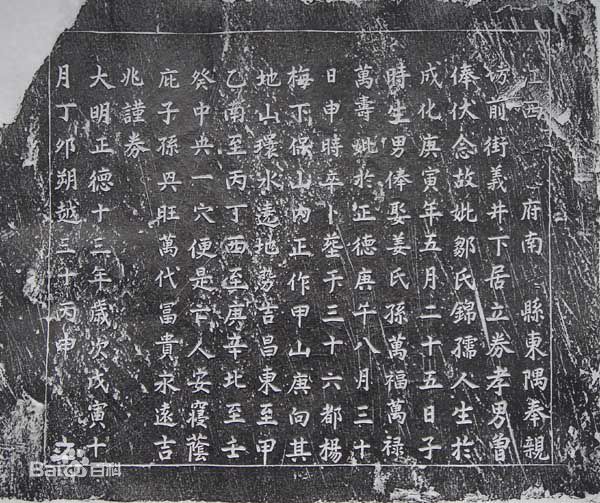 江西府南縣東隅奉親
坊前街義井下居立券孝男曾
俸伏念故妣鄒氏錦孺人生於
成化庚寅年五月二十五日子
時生男俸娶姜氏孫萬福萬祿
萬壽妣於正德庚午八月三十
日申時卒卜塟于三十六都楊
梅下保山內正作甲山庚向其
地山環水遶地勢吉昌東至甲
乙南至丙丁西至庚辛北至壬
癸中央一穴便是亡人安寢蔭
庇子孫興旺萬代冨貴永遠吉
兆謹券
大明正德十三年歲次戊寅十
月丁夘朔越三十丙申
Baidu百科